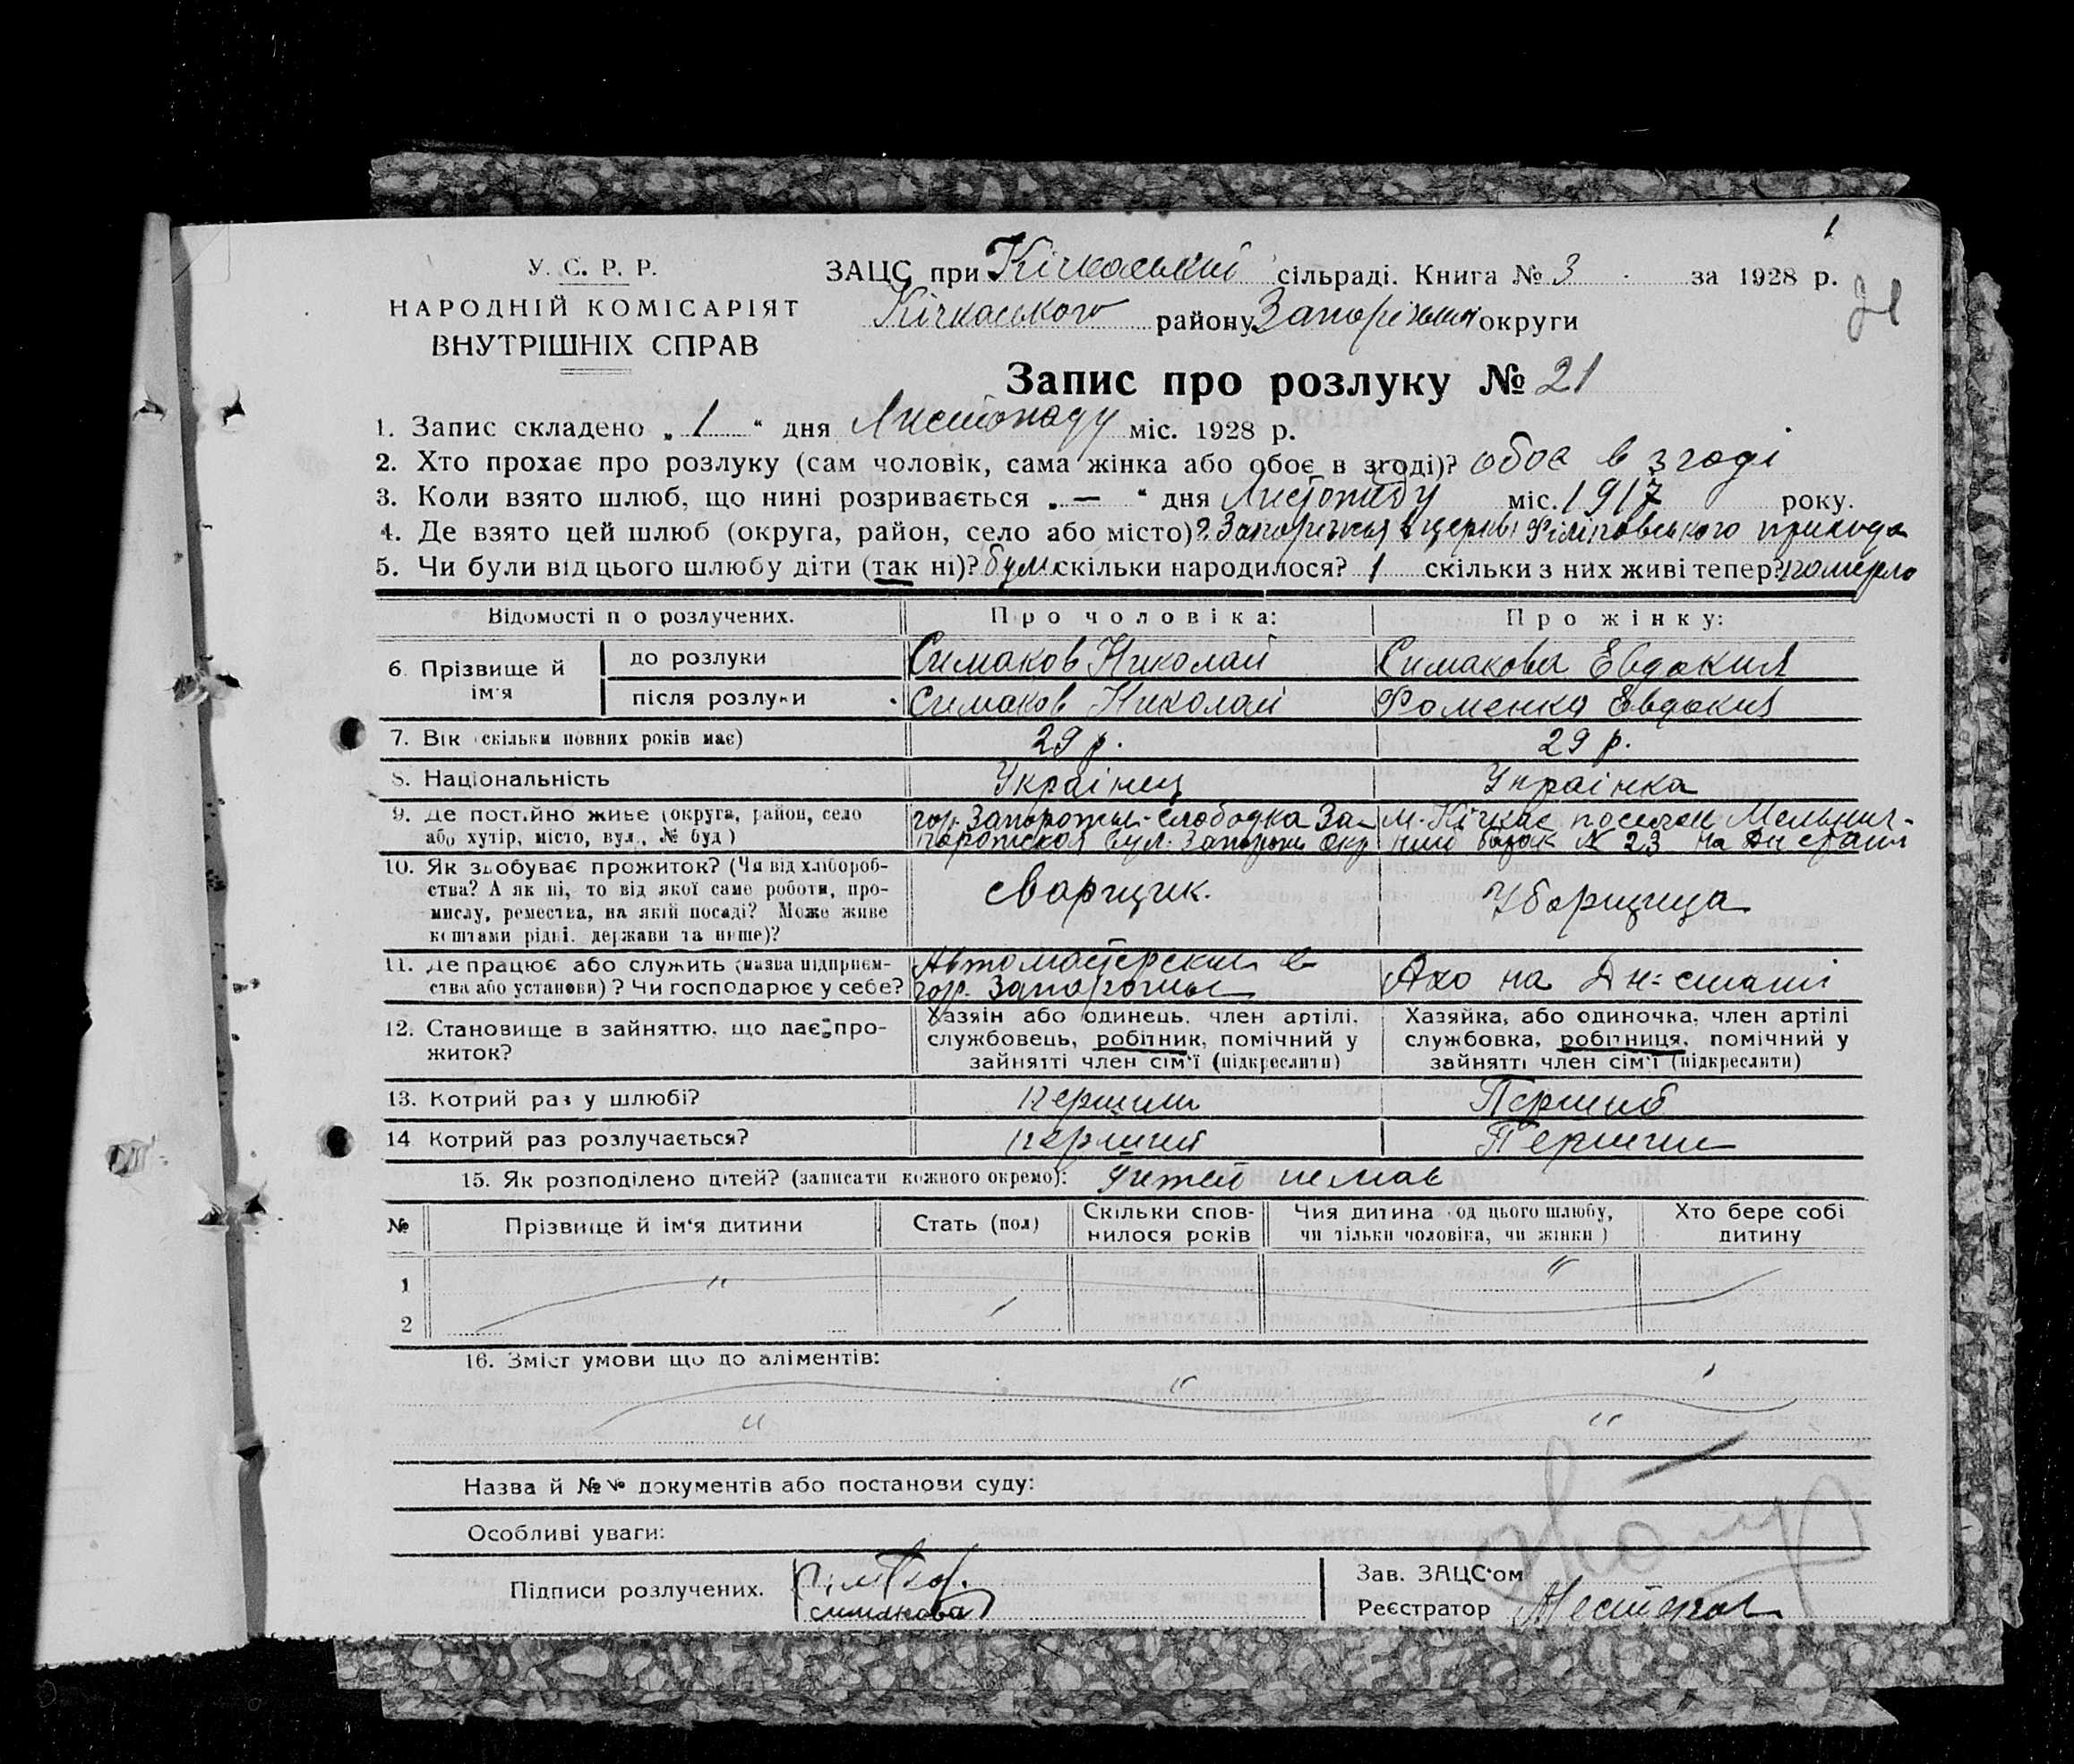 1
У. С. Р. Р.
НАРОДНІЙ КОМІСАРІЯТ
ВНУТРІШНІХ СПРАВ
ЗАЦС при Кічкаській сільраді. Книга № 3 за 1928 р.
Кічкаського району Запоріжської округи
21
Запис про розлуку № 21
1. Запис складено „ 1 “ дня Листопаду міс. 1928 р.
2. Хто прохає про розлуку (сам чоловік, сама жінка або обоє в згоді)? обоє в згоді
3. Коли взято шлюб, що нині розривається „ — “ дня Листопаду міс. 1917 року.
4. Де взято цей шлюб (округа, район, село або місто)? Запоріжжя в церкві Філіповського прихода
5. Чи були від цього шлюбу діти (так ні)? були скільки народилося? 1 скільки з них живі тепер? померло
Відомості по розлучених. Про чоловіка: Про жінку:
6. Прізвище й ім'я
до розлуки Симаков Николай Симакова Евдокия
після розлуки Симаков Николай Фоменко Евдокия
7. Вік (скільки повних років має) 29 р. 29 р.
8. Національність Українец Українка
9. Де постійно живе (округа, район, село гор. Запорожье слободка За- м. Кічкас поселок Мельнич-
або хутір, місто, вул., № буд) порожская вул. Запорож окр ний барак № 23 на
10. Як здобуває прожиток? (Чи від хлібороб-
ства? А як ні, то від якої саме роботи, про-
мислу, ремества, на якій посаді? Може живе
коштами рідні, держави та инше)?
сварщик. Уборщица
11. Де працює або служить (назва підприєм- Автомастерский в
ства або установи)? Чи господарює у себе? гор. Запорожье на Дн-
12. Становище в зайняттю, що дає про-
житок?
Хазяїн або одинець, член артілі,
службовець, робітник, помічний у
зайнятті член сім'ї (підкреслити)
Хазяйка, або одиночка, член артілі
службовка, робітниця, помічний у
зайнятті член сім'ї (підкреслити)
13. Котрий раз у шлюбі? перший Перший
14 Котрий раз розлучається? перший Перший
15. Як розподілено дітей? (записати кожного окремо): дитей немає
№ Прізвище й ім'я дитини Стать (пол) Скільки спов-
нилося років Чия дитина (од цього шлюбу,
чи тільки чоловіка, чи жінки) Хто бере собі
дитину
1 " "
2
16. Зміст умови що до аліментів:
"
" "
Назва й №№ документів або постанови суду:
Особливі уваги:
Підписи розлучених.
симакова
Зав. ЗАЦС'ом
Реєстратор